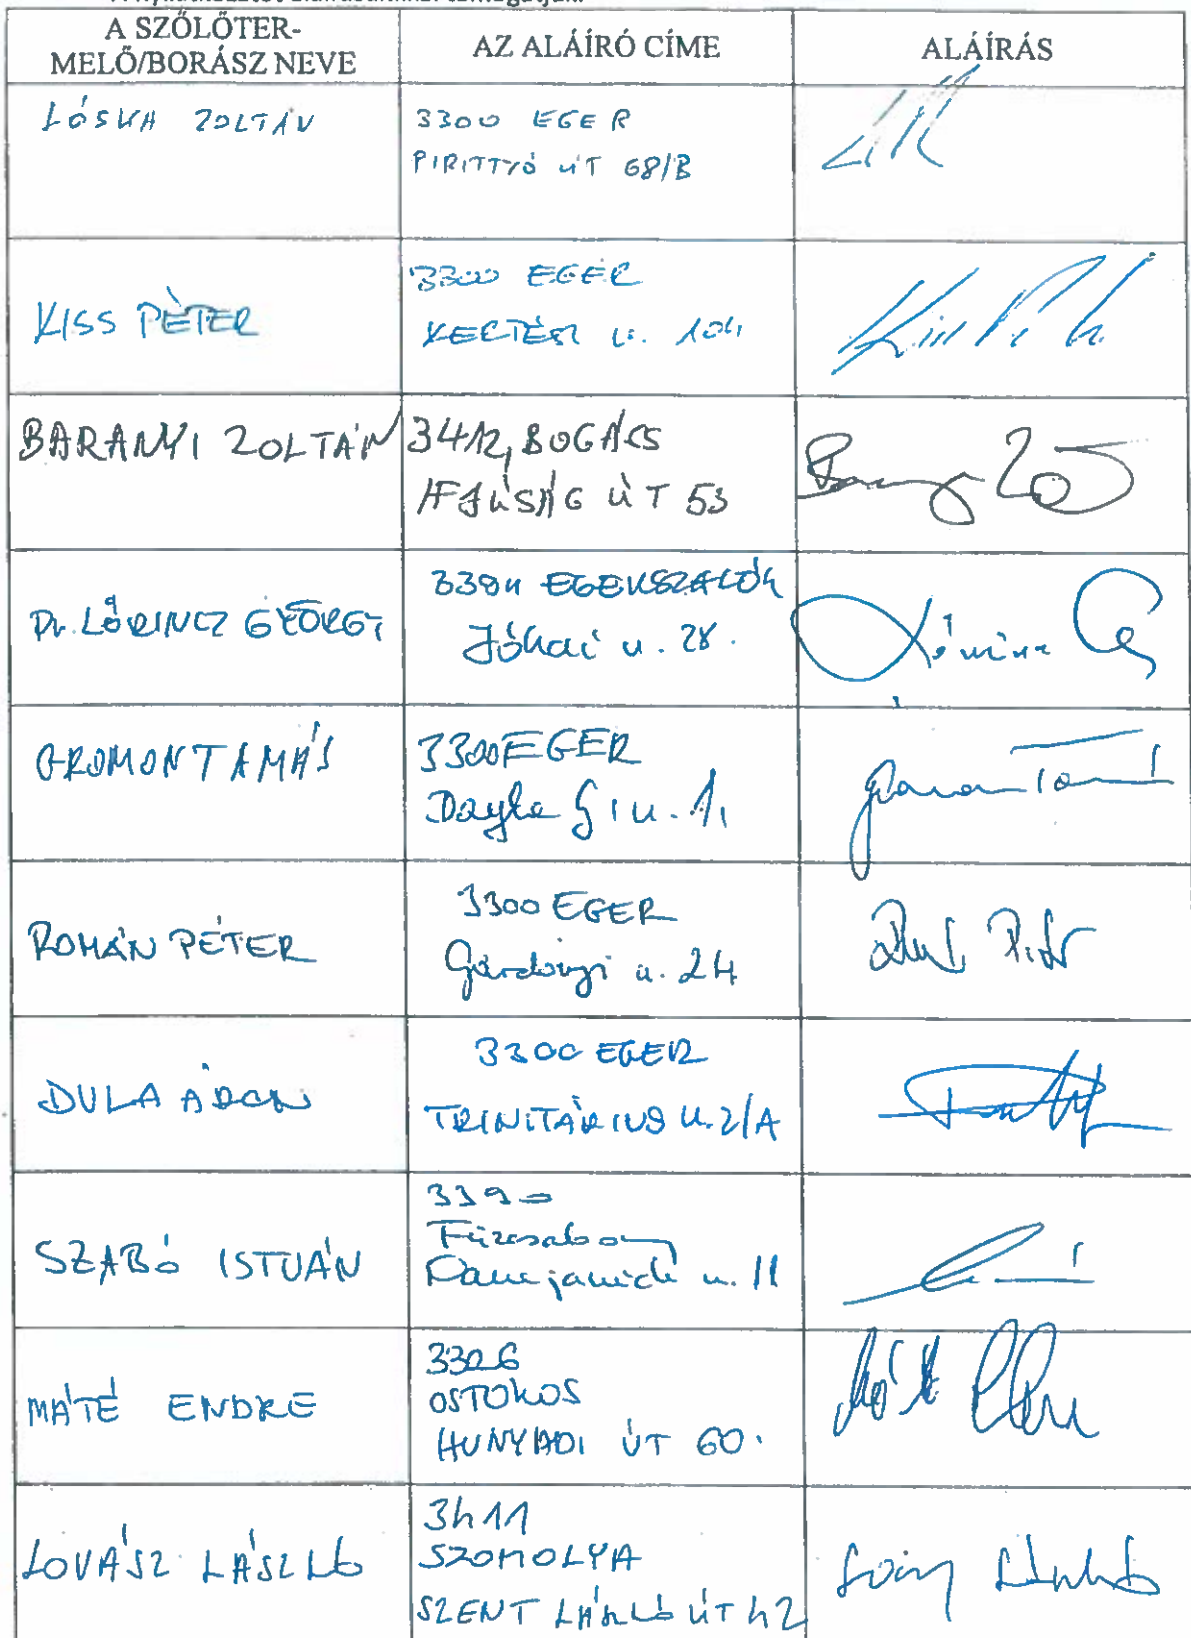 A SZŐLŐTER-
MELŐ/BORÁSZ NEVE
AZ ALÁÍRÓ CÍME
ALÁÍRÁS
LÓSKA ZOLTÁN
3300 EGER
PIRITTYÓ ÚT 68/B
KISS PÉTER
3300 EGER
KERTÉSZ U. 104
Kiss Pé
BARANYI ZOLTÁN
3412, BOGÁCS
IFJÚSÁG ÚT 53
Dr. LŐRINCZ GYÖRGY
3394 EGERSZALÓK
Jókai u. 28.
GROMON TAMÁS
3300 EGER
Dayka G. u. 1.
ROMÁN PÉTER
3300 EGER
Gárdonyi u. 24
DULA ÁRON
3300 EGER
TRINITÁRIUS U. 2/A
SZABÓ ISTVÁN
3390
Füzesabony
Damjanich u. 11
MÁTÉ ENDRE
3326
OSTOROS
HUNYADI ÚT 60.
LOVÁSZ LÁSZLÓ
3411
SZOMOLYA
SZENT LÁSZLÓ ÚT 42